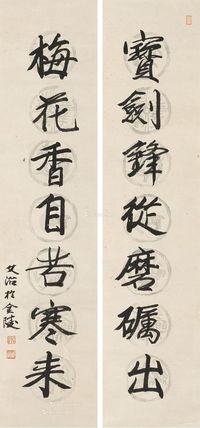 寶劍鋒從磨礪出
梅花香自苦寒来
於金陵